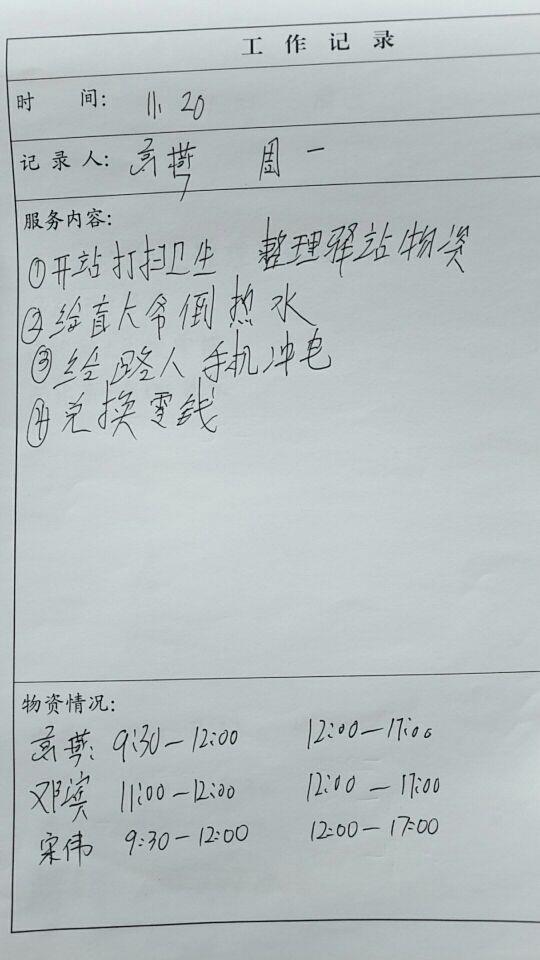 工作记录
时 间: 11. 20
记录人: 高燕 周一
服务内容:
①开站打扫卫生 整理驿站物资
②给直大爷倒热水
③给路人手机冲电
④兑换零钱
物资情况:
高燕: 9:30-12:00 12:00-17:00
邓宾 11:00-12:00 12:00-17:00
宋伟 9:30-12:00 12:00-17:00